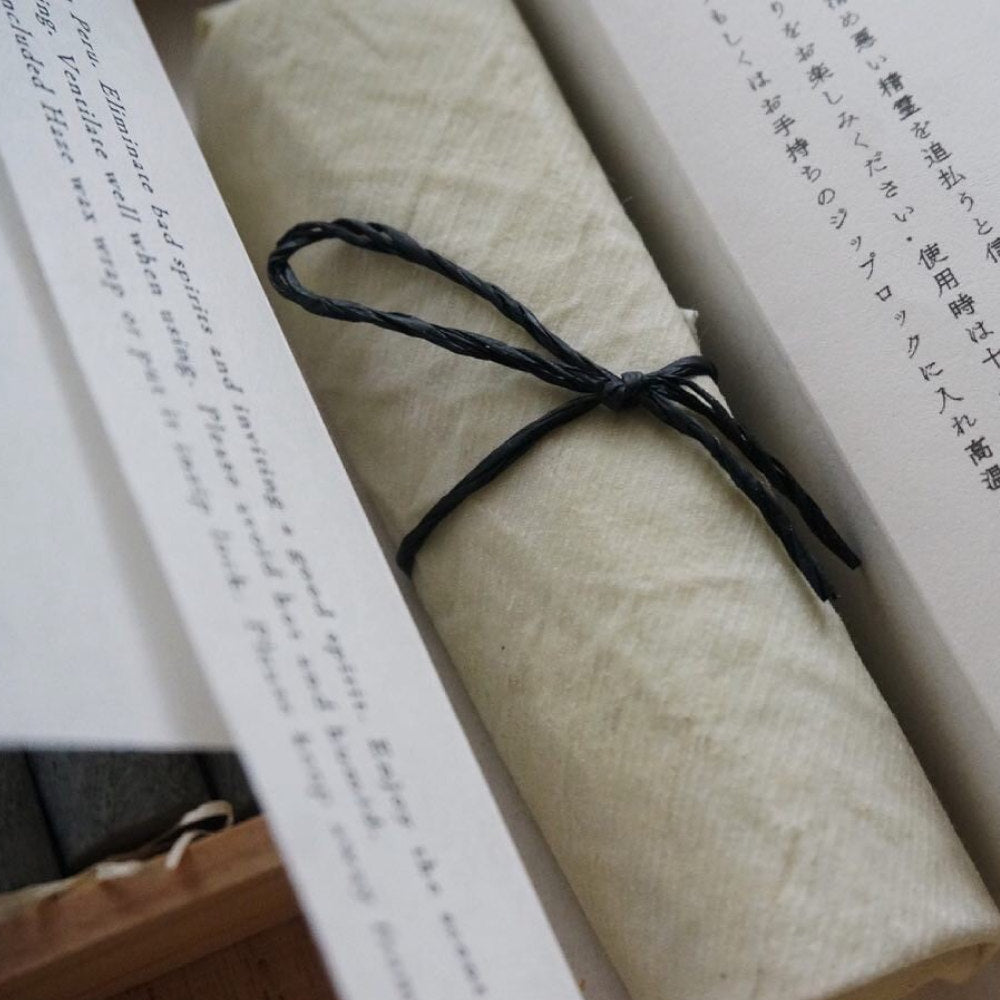 Peru. Eliminate bad spirits and inviting a good spirit. Enjoy the
ing. Ventilate well when using. Please avoid hot and humid
ncluded Haze wax wrap or put it
め悪い精霊を追払うと信
りをお楽しみください。使用時は十
もしくはお手持ちのジップロックに入れ高温